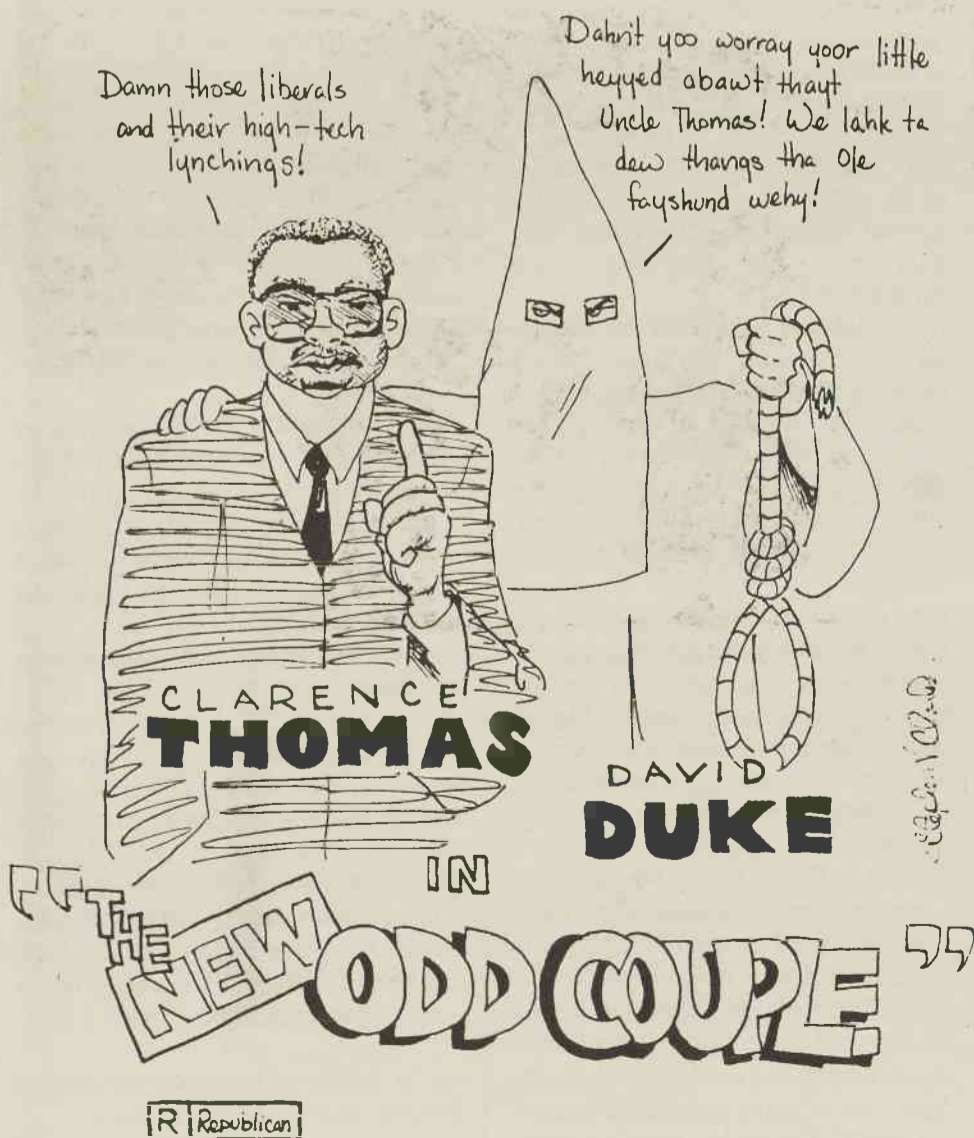 Damn those liberals
and their high-tech
lynchings!
Dahnit yoo worray yoor little
heyyed abawt thayt
Uncle Thomas! We lahk ta
dew thangs tha Ole
fayshund wehy!
CLARENCE
THOMAS
DAVID
DUKE
IN
"THE
NEW
ODD COUPLE"
R Republican